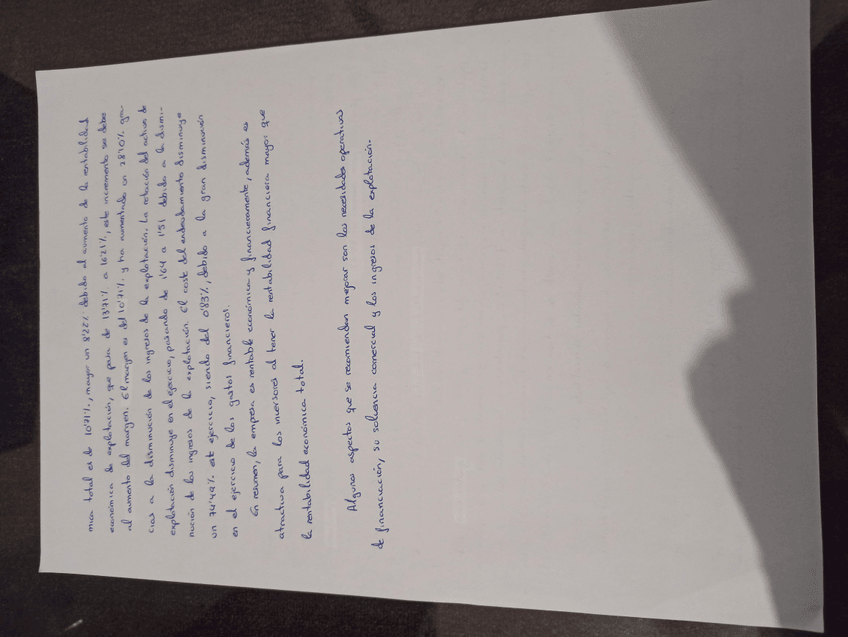 mica total es de 10'71%, mayor un 8'22% debido al aumento de la rentabilidad
económica de explotación, que pasa de 13'71% a 16'21%, este incremento se debe
al aumento del margen. El margen es del 10'71% y ha aumentado un 28'10% gra-
cias a la disminución de los ingresos de la explotación. La rotación del activo de
explotación disminuye en el ejercicio, pasando de 1'64 a 1'51 debido a la dismi-
nución de los ingresos de la explotación. El coste del endeudamiento disminuye
un 74'49% este ejercicio, siendo del 0'83%, debido a la gran disminución
en el ejercicio de los gastos financieros.
En resumen, la empresa es rentable económica y financieramente, además es
atractiva para los inversores al tener la rentabilidad financiera mayor que
la rentabilidad económica total.
Algunos aspectos que se recomiendan mejorar son las necesidades operativas
de financiación, su solvencia comercial y los ingresos de la explotación.